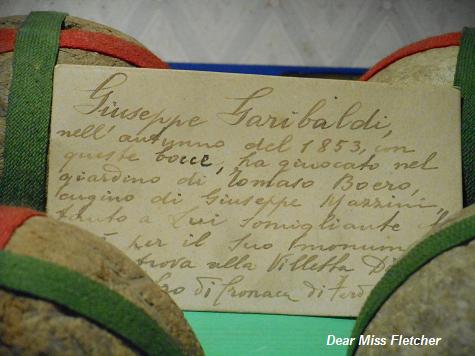 Giuseppe Garibaldi,
nell'autunno del 1853, con
queste bocce, ha giuocato nel
giardino di Tomaso Boero,
cugino di Giuseppe Mazzini,
tanto a Lui somigliante
per il Suo monum
trova alla Villetta Di
di Cronaca di Ferd
Dear Miss Fletcher